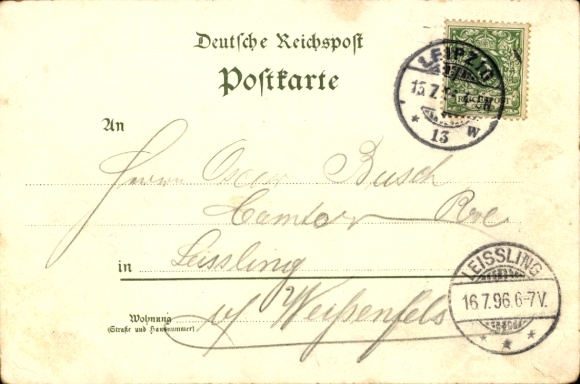 Deutsche Reichspost
Postkarte
LEIPZIG
15.7.
13 W
An
Herrn Oscar Busch
Cantor
in Leissling
LEISSLING
16.7.96.6-7V.
Wohnung
(Straße und Hausnummer)
b/ Weißenfels